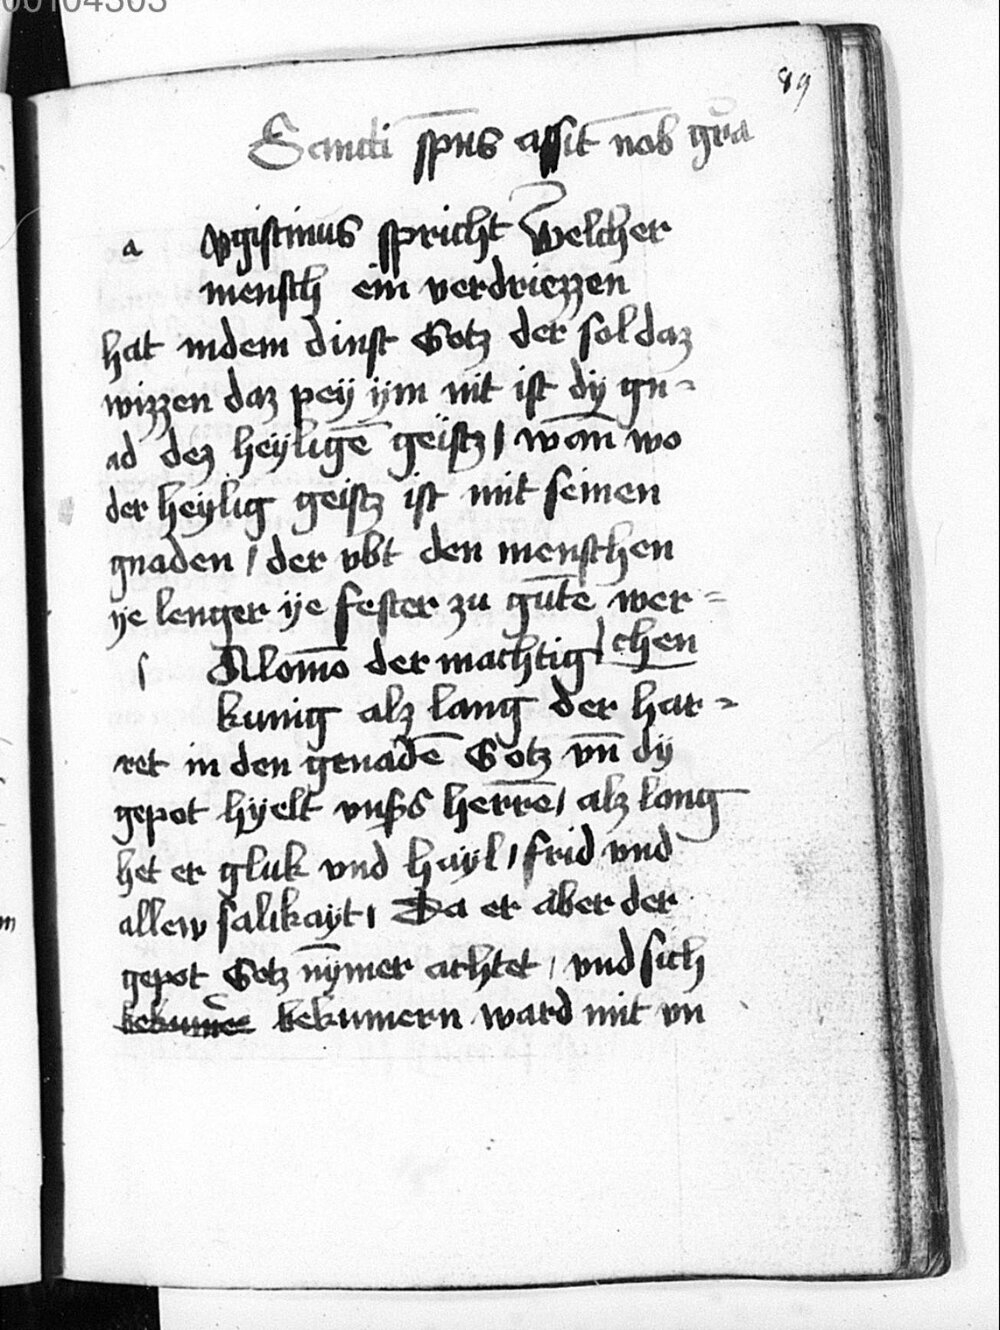 00104303
89
Sancti sp̄ns assit nob̄ gr̃a
a Vgistinus spricht Welcher
mensch ein verdriezzen
hat indem dinst Gotz der sol daz
wizzen daz peÿ ÿm nit ist dÿ gn=
ad dez heÿligē geistz / wan̄ wo
der heÿlig geistz ist mit seinen
gnaden / der vbt den menschen
ÿe lenger ÿe fester zu gūte wer=
chen
s Alomō der machtig
kunig alz lang der har=
ret in den genadē Gotz vn̄ dÿ
gepot hÿelt vnßs herrē / alz lang
het er gluk vnd haÿl / frid vnd
allew salikaÿt / Da er aber der
gepot Gotz nȳmer achtet / vnd sich
bekumern ward mit vn